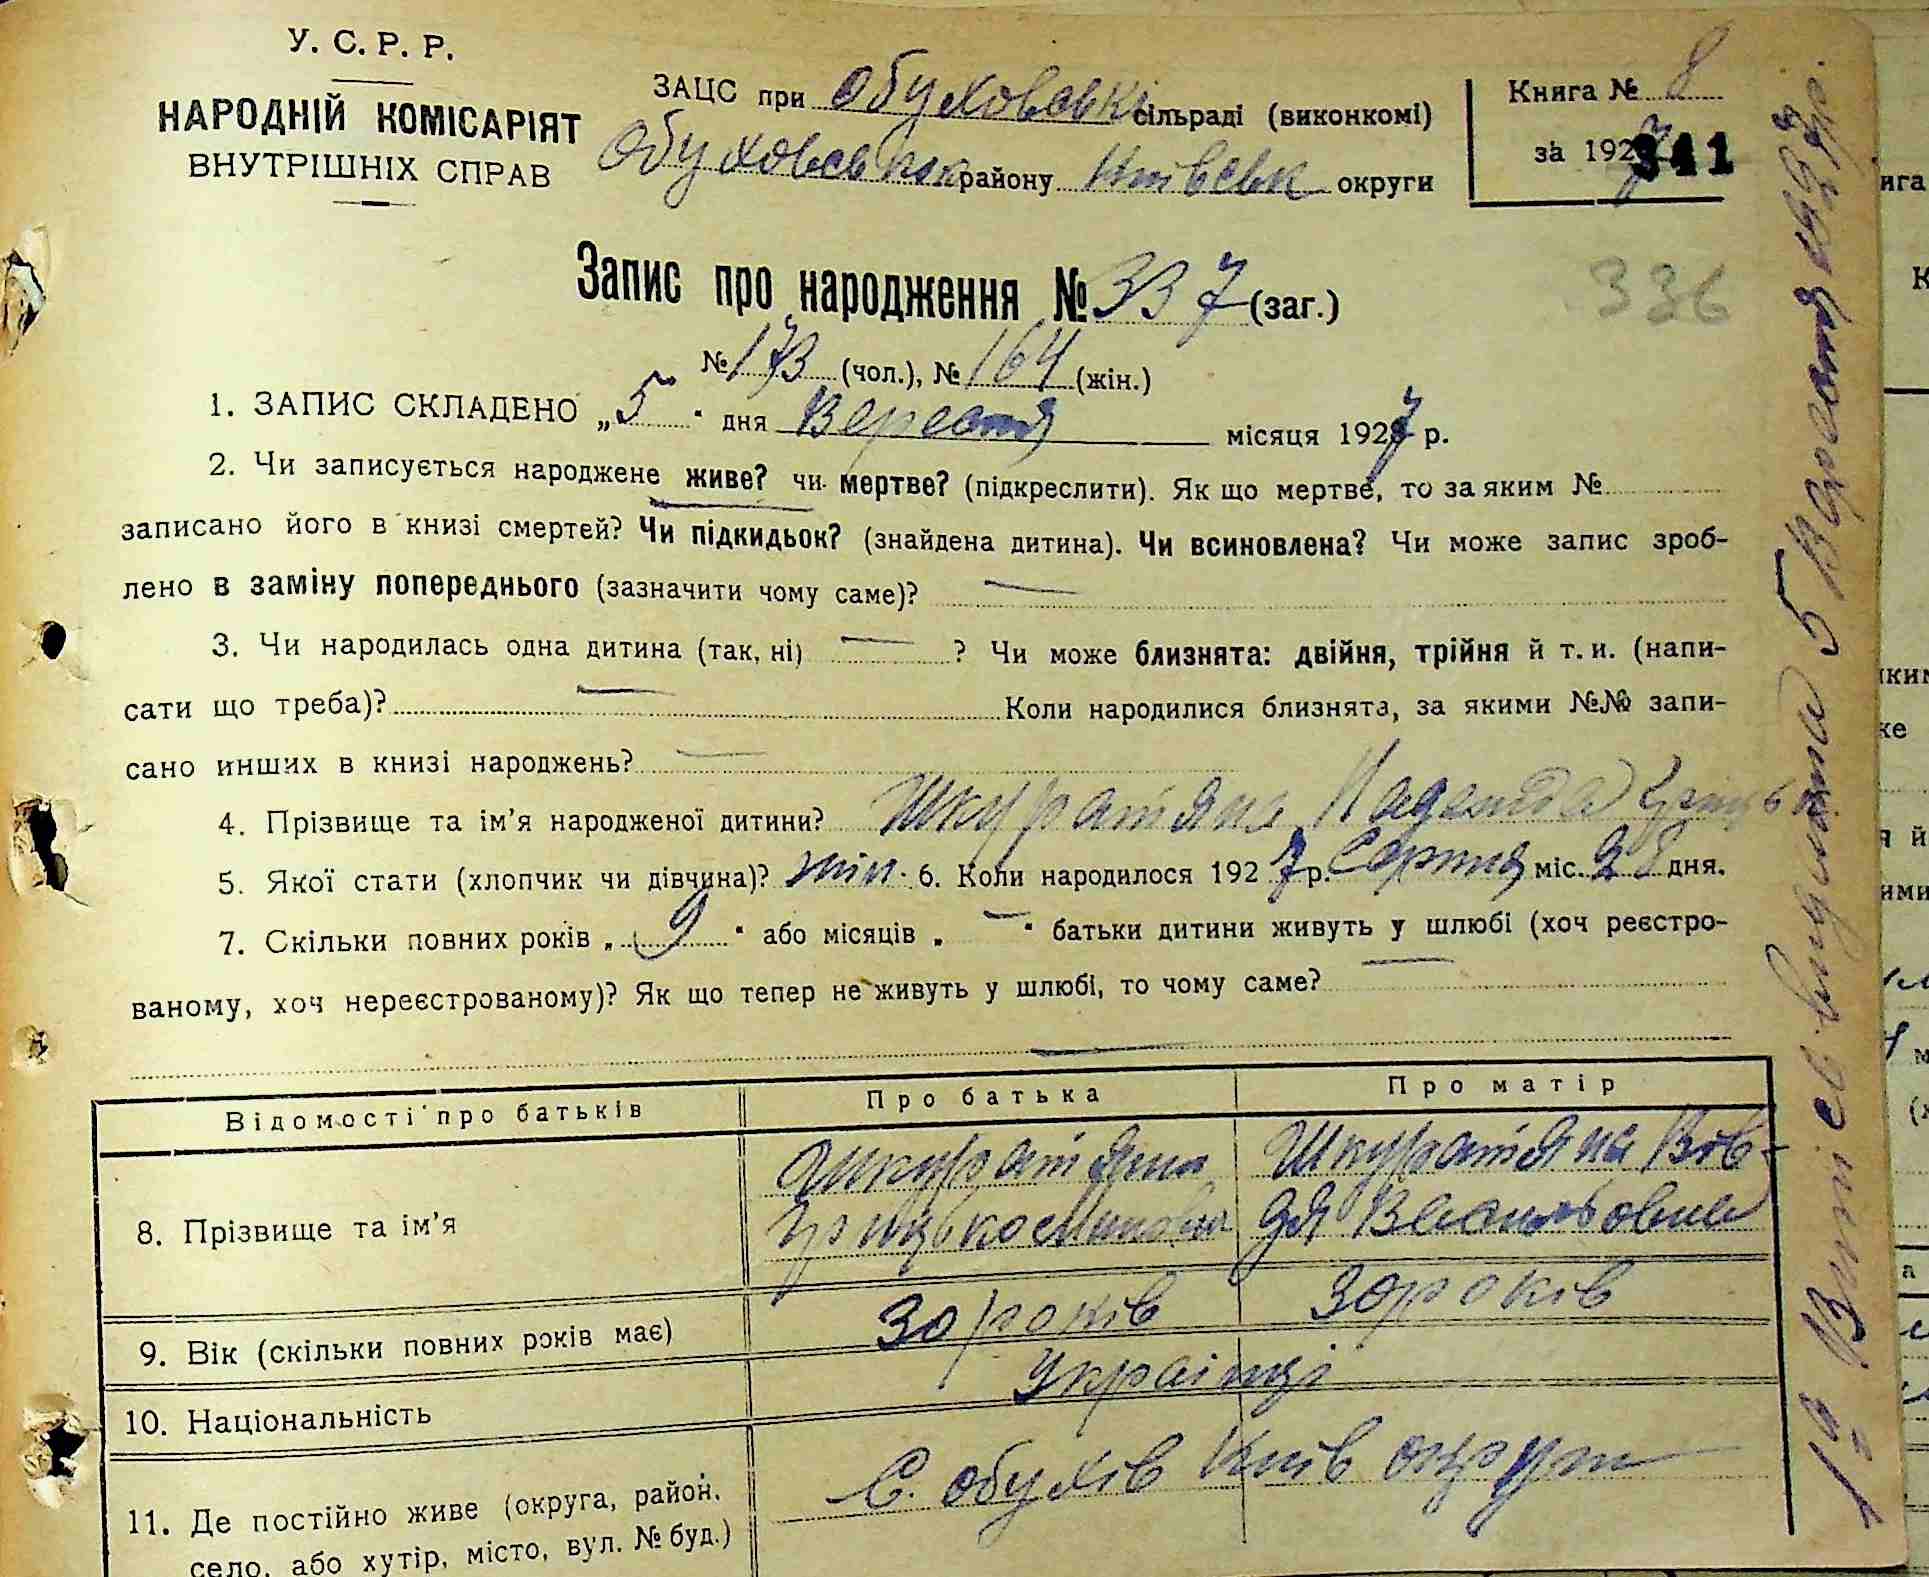 У. С. Р. Р.
НАРОДНІЙ КОМІСАРІЯТ
ВНУТРІШНІХ СПРАВ
ЗАЦС при Обуховські сільраді (виконкомі)
Обуховськ району Київськ округи
Книга № 8
за 1927
341
Запис про народження № 337 (заг.)
336
№ 173 (чол.), № 164 (жін.)
1. ЗАПИС СКЛАДЕНО „5" дня Вересня місяця 1927 р.
2. Чи записується народжене живе? чи мертве? (підкреслити). Як що мертве, то за яким №
записано його в книзі смертей? Чи підкидьок? (знайдена дитина). Чи всиновлена? Чи може запис зроб-
лено в заміну попереднього (зазначити чому саме)? —
3. Чи народилась одна дитина (так, ні) — ? Чи може близнята: двійня, трійня й т. и. (напи-
сати що треба)? — Коли народилися близнята, за якими №№ запи-
сано инших в книзі народжень? —
4. Прізвище та ім'я народженої дитини?
5. Якої стати (хлопчик чи дівчина)? жін. 6. Коли народилося 1927 р. Серпня міс. 28 дня.
7. Скільки повних років „9" або місяців „—" батьки дитини живуть у шлюбі (хоч реєстро-
ваному, хоч нереєстрованому)? Як що тепер не живуть у шлюбі, то чому саме?
—
Відомості про батьків Про батька Про матір
8. Прізвище та ім'я
9. Вік (скільки повних років має) 30 років 30 років
10. Національність Українці
11. Де постійно живе (округа, район, село, або хутір, місто, вул. № буд.) С. Обухів Київ округи
1й Витяг видано 5 Вересня 1927р.